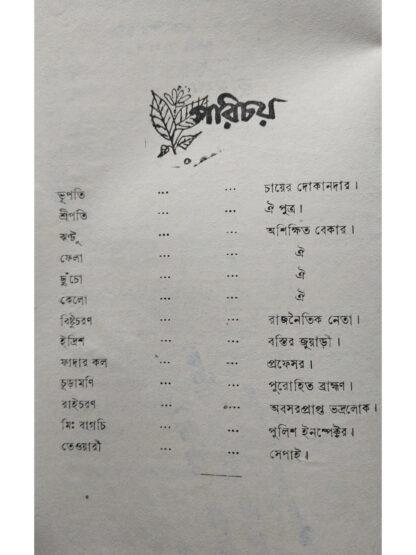 পরিচয়
ভূপতি ... ... চায়ের দোকানদার।
শ্রীপতি ... ... ঐ পুত্র।
ঝণ্টু ... ... অশিক্ষিত বেকার।
ফেলা ... ... ঐ
ছুঁচো ... ... ঐ
কেলো ... ... ঐ
বিষ্টুচরণ ... ... রাজনৈতিক নেতা।
ইদ্রিশ ... ... বস্তির জুয়াড়ী।
ফাদার কল ... ... প্রফেসর।
চূড়ামণি ... ... পুরোহিত ব্রাহ্মণ।
রাইচরণ ... ... অবসরপ্রাপ্ত ভদ্রলোক।
মিঃ বাগচি ... ... পুলিশ ইনস্পেক্টর।
তেওয়ারী ... ... সেপাই।